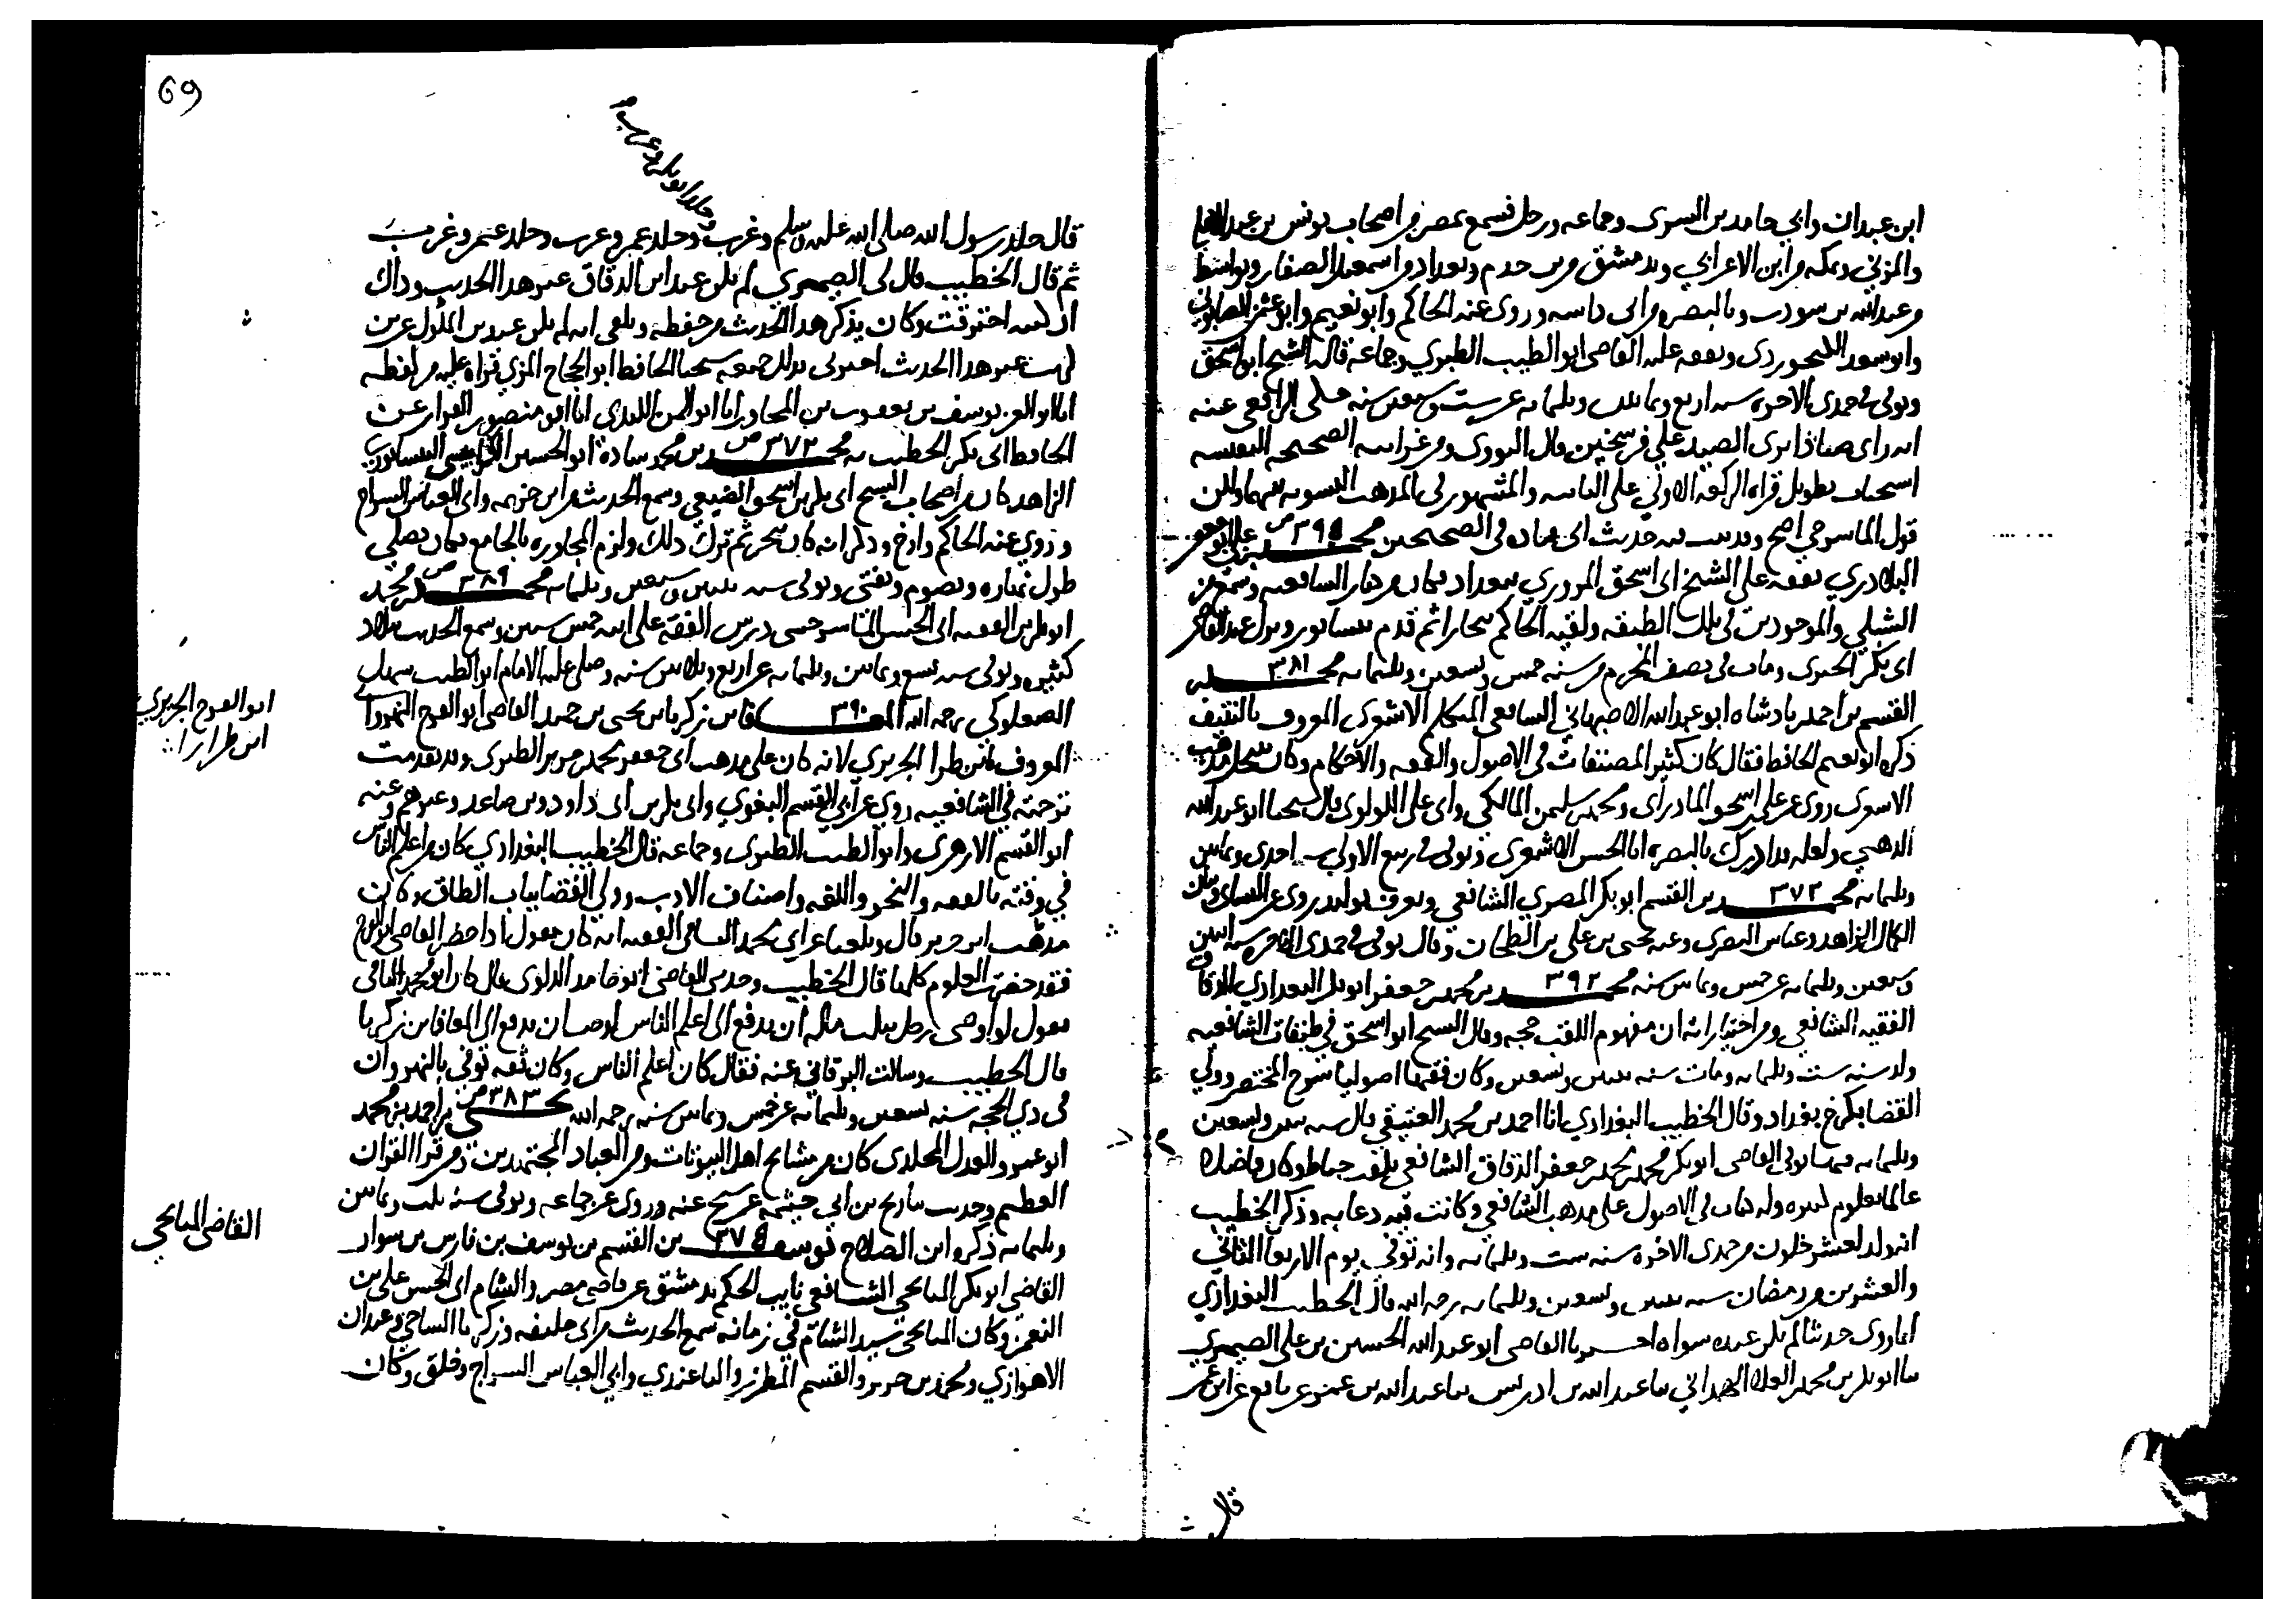 ابن عبدان وابي حامد بن السرى وجماعه ورحل فسمع بمصر من اصحاب يونس بن عبد الاعلى
والمزني وبمكه من ابن الاعرابي وبدمشق من بن حذلم وببغداد من اسمعيل الصفار وبواسط
من عبد الله بن سودب وبالبصره من ابي داسه وروى عنه الحاكم وابو نعيم وابو عثمن الصابوني
وابو سعد الكنجرودى وتفقه عليه القاضى ابو الطيب الطبري وجماعة قاله الشيخ ابو اسحق
وتوفى فى جمدى الاخره سنه اربع وثمانين وثلثمايه عن ست وسبعين سنه حكى الرافعى عنه
انه راى صيادا يرى الصيد على فرسخين وقال النووى ومن غرايبه الصحيحه النفيسه
استحباب تطويل قراه الركعه الاولى على الثانيه والمشهور فى المذهب التسويه بينهما ولكن
قول الماسرجى اصح وقد ثبت فيه حديث ابى قتاده فى الصحيحين محـ ٣٩٥ ـمد بن علي ابو جعفر
البلاذري تفقه على الشيخ ابى اسحق المروزي ببغداد وكان من كبار الشافعيه وسمع من
الشبلي والموجودين في تلك الطبقه ولقيه الحاكم ببخارا ثم قدم نيسابور ونزل عند القاضي
ابى بكر الحيرى ومات فى نصف المحرم من سنه خمس وتسعين وثلثمايه محـ ٣٨١ ـمد بن
القسم بن احمد بن بادشاه ابو عبد الله الاصبهاني الشافعى المتكلم الاشعرى المعروف بالنتيف
ذكره ابو نعيم الحافظ فقال كان كثير المصنفات فى الاصول والفقه والاحكام وكان ينتحل مذهب
الاشعرى روى عن على بن اسحق المادراى ومحمد بن سليمن المالكي وابى على اللولوى قال شيخنا ابو عبد الله
الذهبي ولعله قد ادرك بالبصره ابا الحسن الاشعري وتوفى فى ربيع الاول سنه احدى وثمانين
وثلثمايه محـ ٣٧٢ ـمد بن القسم ابو بكر المصري الشافعي ويعرف بوليد روى عن النساى وبنان
الحمال الزاهد وعباس البصرى وعنه يحيى بن على بن الطحان وقال توفى فى جمدى الاخره سنه اثنين
وسبعين وثلثمايه عن خمس وثمانين سنه محـ ٣٩٢ ـمد بن محمد بن جعفر ابو بكر البغدادي الدقاق
الفقيه الشافعي ومن اختياراته ان مفهوم اللقب حجه وقال الشيخ ابو اسحق في طبقات الشافعيه
ولد سنه ست وثلثمايه ومات سنه اثنين وتسعين وكان فقيها اصوليا شرح المختصر وولي
القضا بكرخ بغداد وقال الخطيب البغدادي انا احمد بن محمد العتيقي قال سنه اثنين وتسعين
وثلثمايه فيها توفى القاضى ابو بكر محمد بن محمد بن جعفر الدقاق الشافعي يلقب خباط وكان فاضلا
عالما بعلوم كثيره وله كتاب فى الاصول على مذهب الشافعي وكانت فيه دعابه وذكر الخطيب
انه ولد لعشر خلون من جمدى الاخره سنه ست وثلثمايه وانه توفى يوم الاربعا الثاني
والعشرين من رمضان سنه اثنين وتسعين وثلثمايه رحمه الله قال الخطيب البغدادي
انما روى حديثا لم يكن عنده سواه اخبرنا القاضى ابو عبد الله الحسين بن على الصيمري
ثنا ابو بكر بن محمد العلا الهمداني ثنا عبد الله بن ادريس ثنا عبيد الله بن عمر عن نافع عن ابن عمر
قال
69
وجلد ابو بكر وغرب
قال جلد رسول الله صلى الله عليه وسلم وغرب وجلد عمر وغرب وجلد عمر وغرب
ثم قال الخطيب قال لى الصيمري لم يكن عند ابن الدقاق غير هذا الحديث وذاك
ان كتبه احترقت وكان يذكر هذا الحديث من حفظه وبلغنى انه لم يكن عند بن المتوكل عن بن
كريب غير هذا الحديث اخبرنى بذلك جميعه شيخنا الحافظ ابو الحجاج المزي قراه عليه من لفظه
انا ابو العز يوسف بن يعقوب بن المجاور انا ابو اليمن الكندى انا ابو منصور القزاز عن
الحافظ ابى بكر الخطيب به محـ ٣٧٣ ـمد بن محمد بن شاده ابو الحسين الكرابيسى النيسابورى
الزاهد كان من اصحاب الشيخ ابى بكر بن اسحق الضبعي وسمع الحديث من ابن خزيمه وابى العباس السراج
وروي عنه الحاكم وارخ وذكر انه كان يتجر ثم ترك ذلك ولزم المجاوره بالجامع وكان يصلي
طول نهاره ويصوم ويفتى وتوفى سنه ثلث وسبعين وثلثمايه محـ ٣٨٩ ـمد بن محمد
ابو بكر بن الفقيه ابى الحسن الماسرجسى درس الفقه على ابيه خمس سنين وسمع الحديث بلاد
كثيره وتوفى سنه تسع وثمانين وثلثمايه عن اربع وثلاثين سنه وصلى عليه الامام ابو الطيب سهل
الصعلوكى رحمه الله المعـ ٣٩٠ ـافا بن زكريا بن يحيى بن حميد القاضى ابو الفرج النهروانى
المعروف بابن طرارا الجريري لانه كان على مذهب ابى جعفر محمد بن جرير الطبرى وقد تقدمت
ترجمته في الشافعيه روي عن ابي القسم البغوي وابى بكر بن ابى داود وبن صاعد وغيرهم وعنه
ابو القسم الازهرى وابو الطيب الطبرى وجماعه قال الخطيب البغدادي كان من اعلم الناس
في وقته بالفقه والنحو واللغه واصناف الادب وولي القضا بباب الطاق وكان على
مذهب ابن جرير قال وبلغنا عن ابى محمد البافى الفقيه انه كان يقول اذا حضر القاضى ابو الفرج
فقد حضرت العلوم كلها قال الخطيب وحدثنى القاضى ابو حامد الدلوى قال كان ابو محمد البافى
يقول لو اوصى رجل بثلث ماله ان يدفع الى اعلم الناس لوجب ان يدفع الى المعافا بن زكريا
قال الخطيب وسالت البرقاني عنه فقال كان اعلم الناس وكان ثقه توفي بالنهروان
فى ذي الحجه سنه تسعين وثلثمايه عن خمس وثمانين سنه رحمه الله يحـ ٣٨٣ ـيى بن احمد بن محمد
ابو عمرو العدل المخلدى كان من مشايخ اهل البيوتات ومن العباد المجتهدين ومن قرا القران
العظيم وحدث بتاريخ بن ابي خيثمه عن شيخ عنه وروى عن جماعه وتوفى سنه ثلث وثمانين
وثلثمايه ذكره ابن الصلاح يوسـ ٣٧٥ ـف بن القسم بن يوسف بن فارس بن سوار
القاضى ابو بكر الميانجي الشافعي نايب الحكم بدمشق عن قاضى مصر والشام ابى الحسن على بن
النعمن وكان الميانجى مسند الشام في زمانه سمع الحديث من ابى خليفه وزكريا الساجي وعبدان
الاهوازي ومحمد بن جرير والقسم المطرز والباغندي وابي العباس السراج وخلق وكان
ابو الفرج الجريري
ابن طرارا
القاضى الميانجي